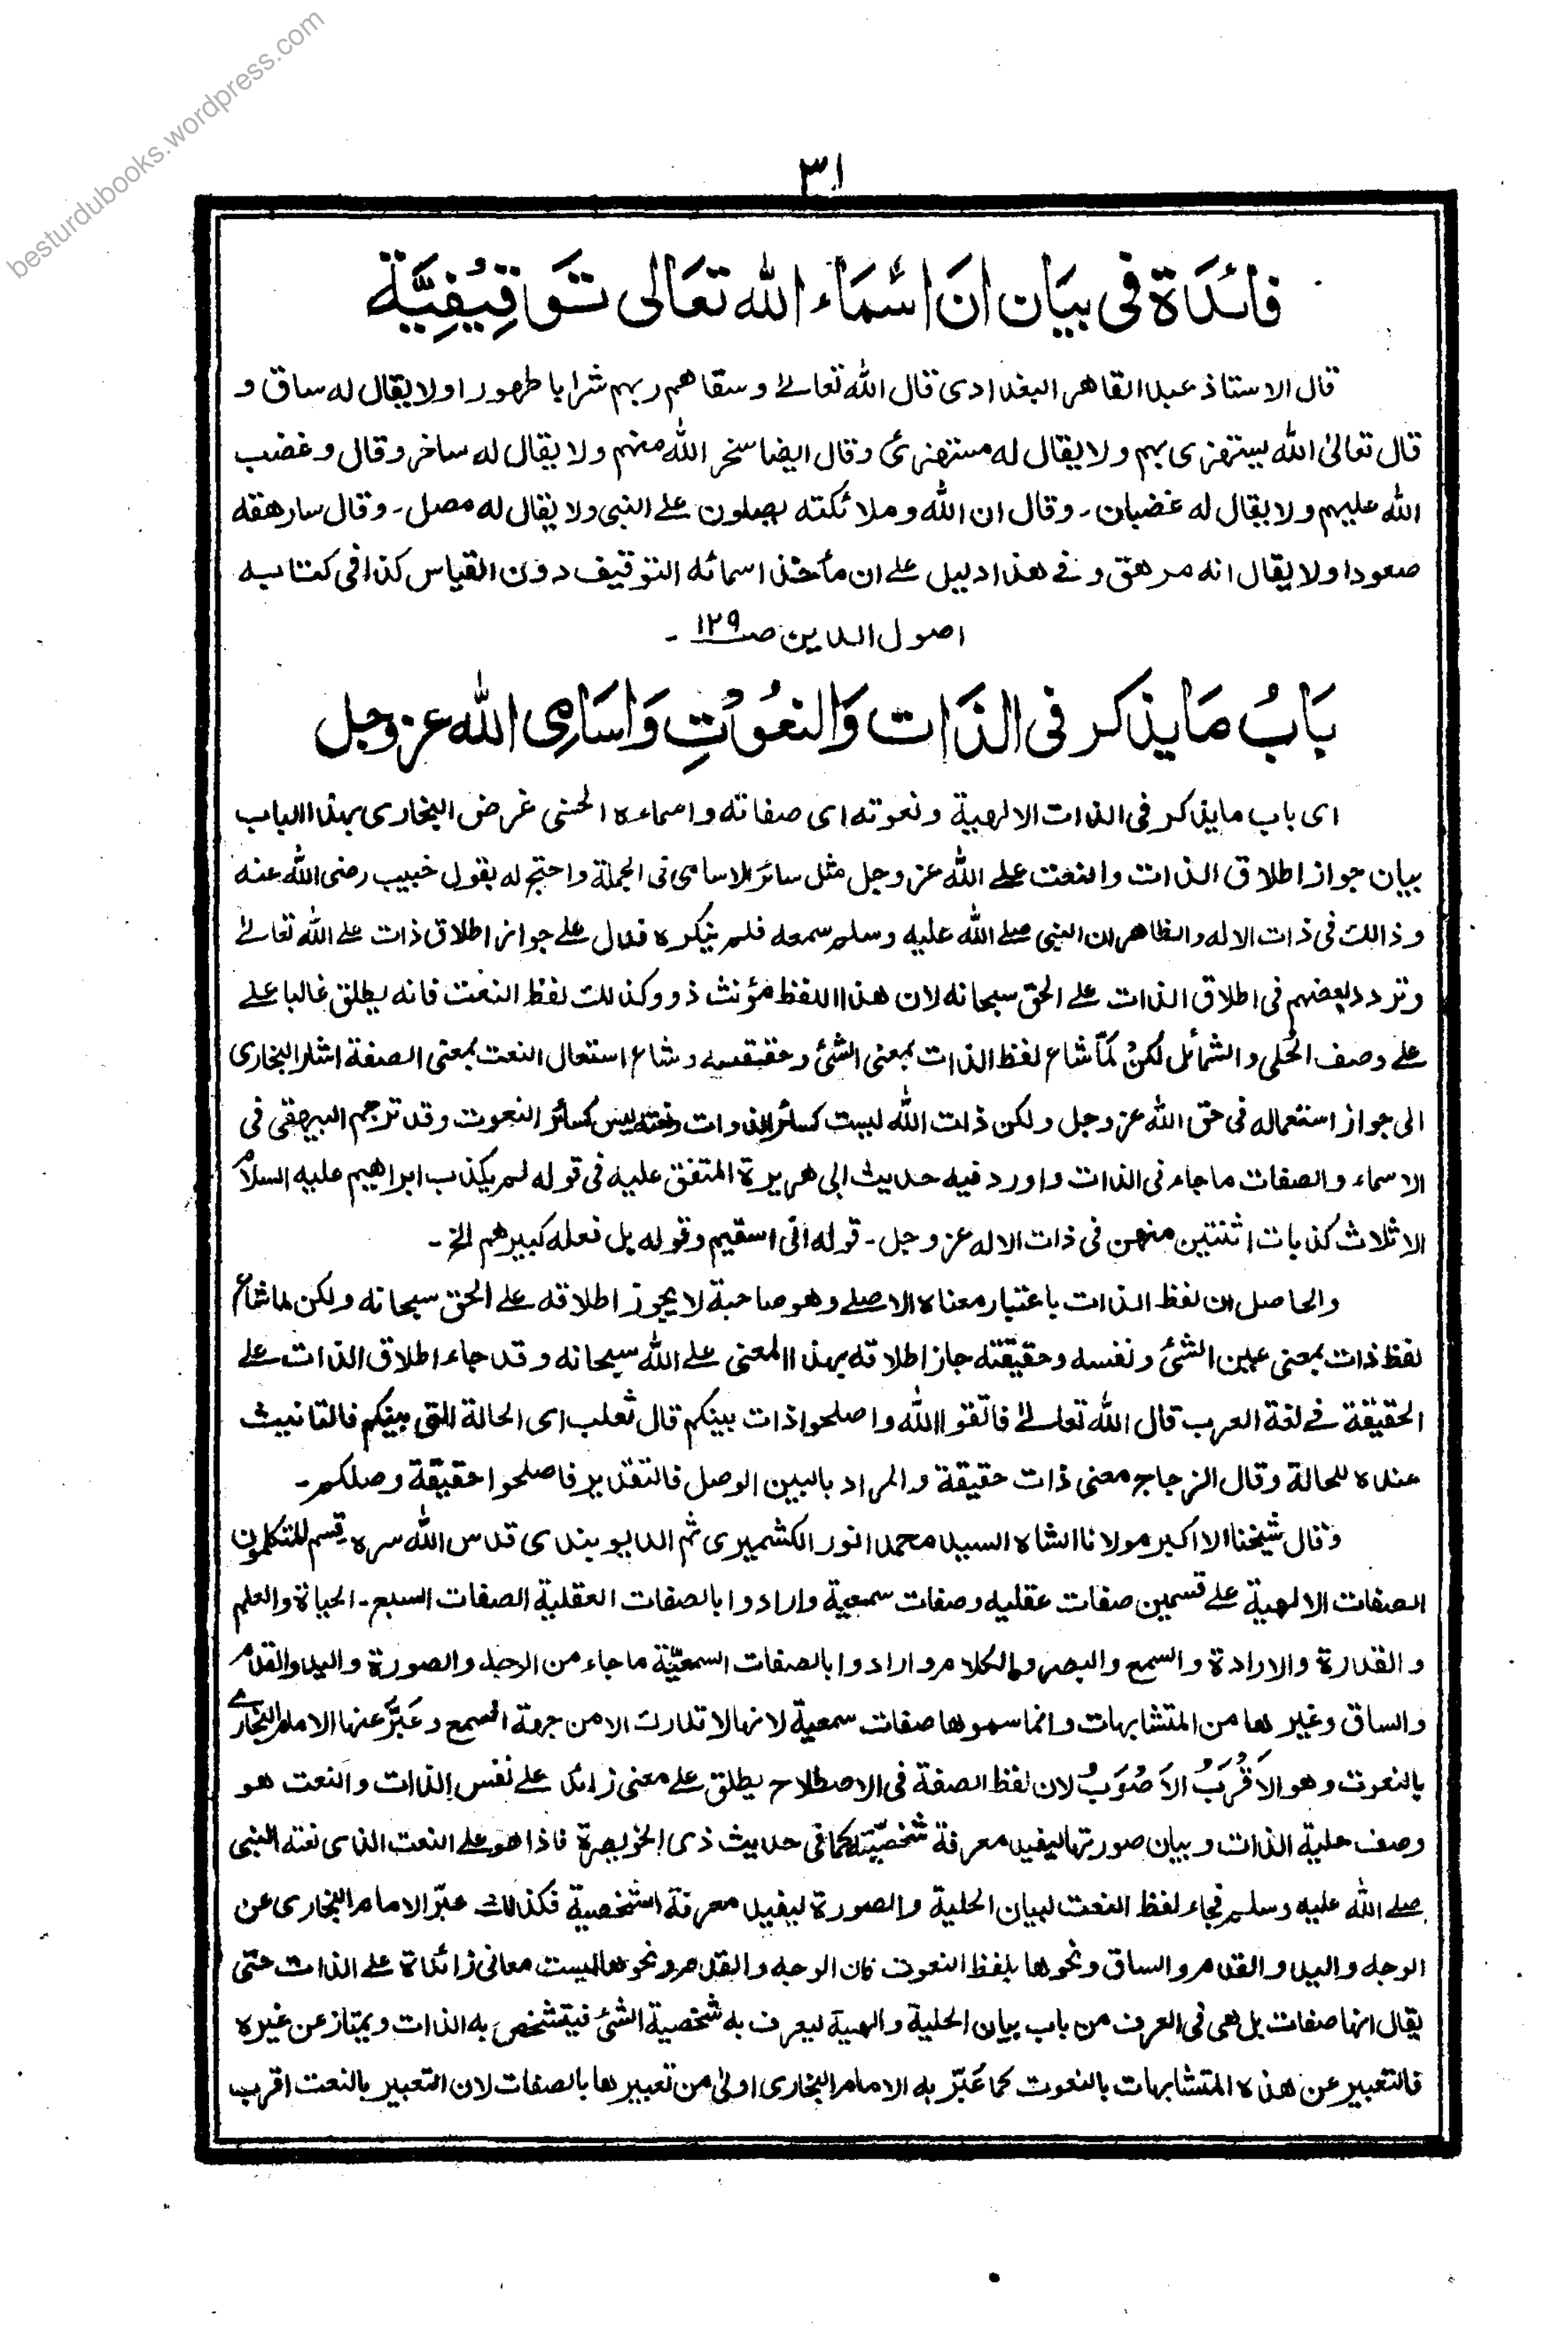 besturdubooks.wordpress.com
٣١
فائدة فى بيان ان اسماء الله تعالى توقيفية
قال الاستاذ عبد القاهر البغدادى قال الله تعالےٰ وسقاهم ربهم شرابا طهورا ولا يقال له ساق و
قال تعالىٰ الله يستهزى بهم ولا يقال له مستهزئ وقال ايضا سخر الله منهم ولا يقال له ساخر وقال وغضب
الله عليهم ولا يقال له غضبان ۔ وقال ان الله وملائكته يصلون علے النبى ولا يقال له مصل ۔ وقال سارهقه
صعودا ولا يقال انه مرهق و فے هذا دليل علے ان مأخذ اسمائه التوقيف دون القياس كذا فى كتابه
اصول الدين صـ ١٢٩ ۔
بَابُ مَا يذكر فى الذَات وَالنعُوْتِ وَاسَامِى الله عز وجل
اى باب ما يذكر فى الذات الالهية ونعوته اى صفاته واسماءه الحسنى غرض البخارى بهذا الباب
بيان جواز اطلاق الذات والنعت علے الله عز وجل مثل سائر الاسامى فى الجملة واحتج له بقول خبيب رضى الله عنه
وذالك فى ذات الاله والظاهر ان النبى صلے الله عليه وسلم سمعه فلم ينكره فدل علے جواز اطلاق ذات علے الله تعالےٰ
وتردد بعضهم فى اطلاق الذات علے الحق سبحانه لان هذا اللفظ مؤنث ذو وكذلك لفظ النعت فانه يطلق غالبا علے
علے وصف الحُلى والشمائل لكنْ لمّا شاع لفظ الذات بمعنى الشئ وحقيقسه وشاع استعمال النعت بمعنى الصفة اشار البخارى
الى جواز استعماله فى حق الله عز وجل ولكن ذات الله ليست كسائر الذوات ونعته ليس كسائر النعوت وقد ترجم البيهقى فى
الاسماء والصفات ما جاء فى الذات واورد فيه حديث ابى هريرة المتفق عليه فى قوله لم يكذب ابراهيم عليه السلام
الا ثلاث كذبات اثنتين منهن فى ذات الاله عز وجل ۔ قوله انى اسقيم وقوله بل فعله كبيرهم الخ ۔
والحاصل ان لفظ الذات باعتبار معناه الاصلے وهو صاحبة لا يجوز اطلاقه علے الحق سبحانه ولكن لما شاع
لفظ ذات بمعنى عين الشئ ونفسه وحقيقته جاز اطلاقه بهذا المعنى علے الله سبحانه وقد جاء اطلاق الذات علے
الحقيقة فے لغة العرب قال الله تعالےٰ فاتقوا الله واصلحوا ذات بينكم قال ثعلب اى الحالة التى بينكم فالتانيث
عنده للحالة وقال الزجاج معنى ذات حقيقة والمراد بالبين الوصل فالتقدير فاصلحوا حقيقة وصلكم ۔
وقال شيخنا الاكبر مولانا الشاه السيد محمد انور الكشميرى ثم الديوبندى قدس الله سره قسم المتكلمون
الصفات الالهية علے قسمين صفات عقليه وصفات سمعية وارادوا بالصفات العقلية الصفات السبع ۔ الحياة والعلم
والقدرة والارادة والسمع والبصر والكلام وارادوا بالصفات السمعيّة ما جاء من الوجه والصورة واليد والقدم
والساق وغيرها من المتشابهات وانما سموها صفات سمعية لانها لا تدرك الا من جهة السمع وعَبَّرَ عنها الامام البخارے
بالنعوت وهو الاَقْرَبُ الاَصْوَبُ لان لفظ الصفة فى الاصطلاح يطلق علے معنى زائد علے نفس الذات والنعت هو
وصف حلية الذات وبيان صورتها ليفيد معرفة شخصيّته كما فى حديث ذى الخويصرة فاذا هو على النعت الذى نعته النبى
صلے الله عليه وسلم فجاء لفظ النعت لبيان الحلية والصورة ليفيد معرفة الشخصية فكذالك عبّر الامام البخارى عن
الوجه واليد والقدم والساق ونحوها بلفظ النعوت فان الوجه والقدم ونحوها ليست معانى زائدة علے الذات حتى
يقال انها صفات بل هى فى العرف من باب بيان الحلية والهية ليعرف به شخصية الشئ فيتشخص به الذات ويمتاز عن غيره
فالتعبير عن هذه المتشابهات بالنعوت كما عَبّر به الامام البخارى اولىٰ من تعبيرها بالصفات لان التعبير بالنعت اقرب